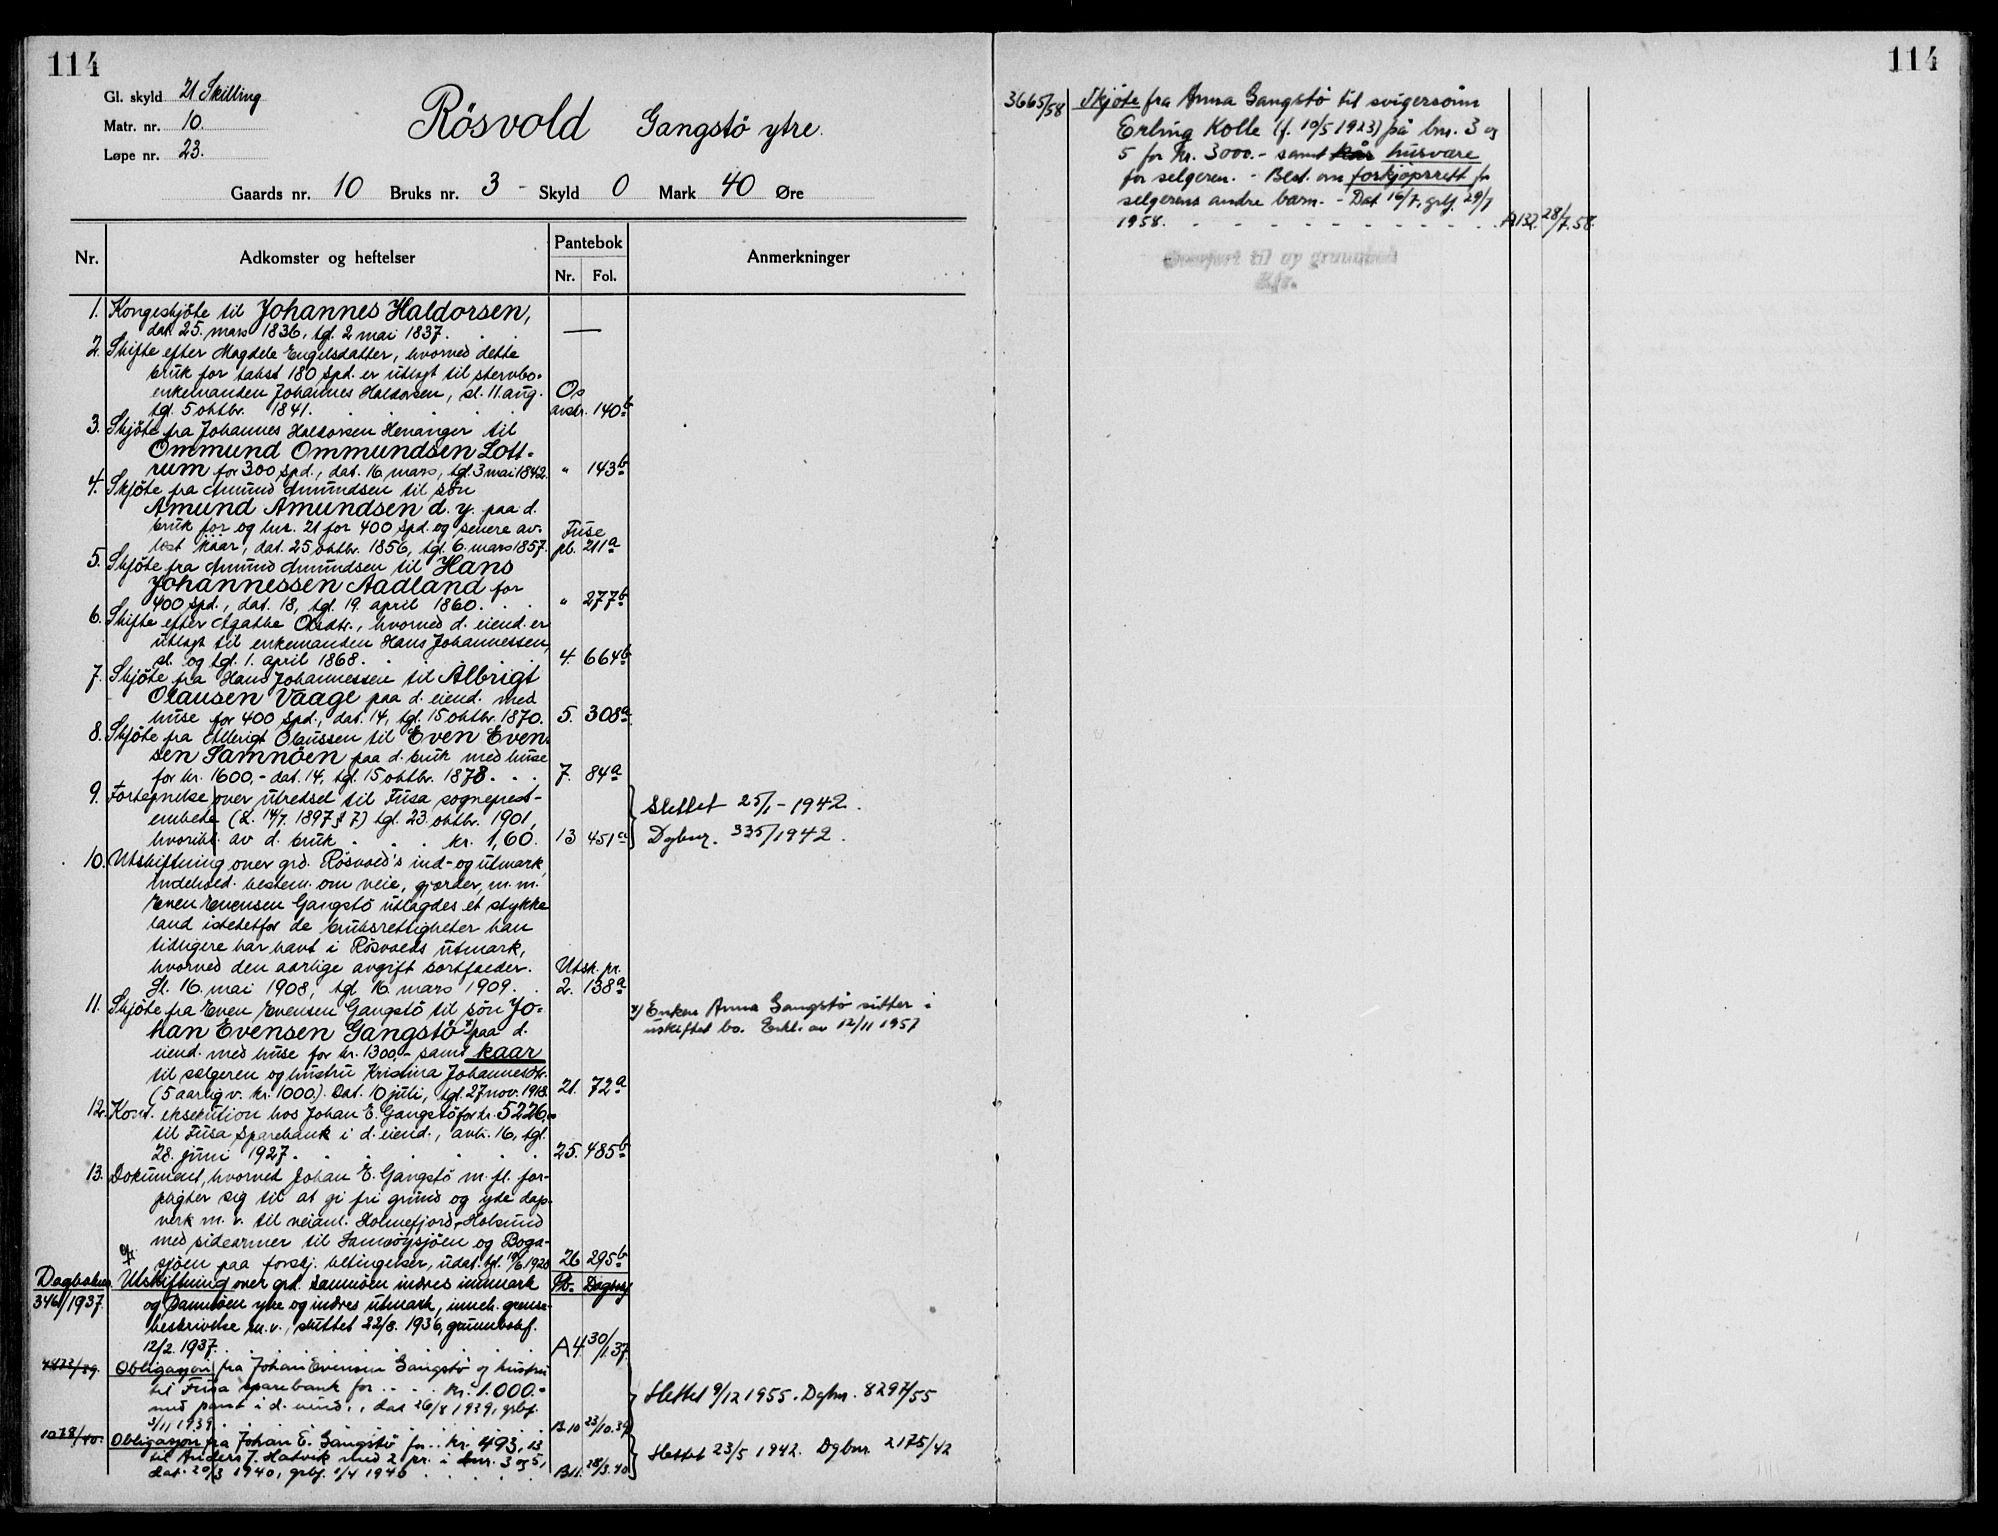 114
Gl. skyld 21 Skilling
Matr. nr. 10.
Løpe nr. 23.
Rösvold Gangstö ytre.
Gaards nr. 10 Bruks nr. 3 - Skyld 0 Mark 40 Øre
Nr. Adkomster og heftelser Pantebok Nr. Fol. Anmerkninger
1. Kongeskjöte til Johannes Haldorsen,
dat. 25. mars 1836, tgl. 2 mai 1837. —
2. Skifte efter Magdele Engelsdatter, hvorved dette
bruk for takst 180 spd. er utlagt til stervbo-
enkemanden Johannes Haldorsen, sl. 11. aug. Os
tgl. 5 oktbr. 1841. avskr. 140b
3. Skjöte fra Johannes Haldorsen Henanger til
Ommund Ommundsen Lott-
rum for 300 spd., dat. 16. mars, tgl. 3 mai 1842. " 143b
4. Skjöte fra Amund Amundsen til sön
Amund Amundsen d. y. paa d.
bruk for og bnr. 21 for 400 spd. og senere av- Fuse
löst kaar, dat. 25 oktbr. 1856, tgl. 6. mars 1857. pb. 211a
5. Skjöte fra Amund Amundsen til Hans
Johannessen Aadland for
400 spd., dat. 18, tgl. 19. april 1860. " 277b
6. Skifte efter Agathe Olsdtr., hvorved d. eiend. er
utlagt til enkemanden Hans Johannessen,
sl. og tgl. 1. april 1868. 4. 664b
7. Skjöte fra Hans Johannessen til Albrigt
Olausen Vaage paa d. eiend. med
huse for 400 spd., dat. 14, tgl. 15 oktbr. 1870. 5. 308a
8. Skjöte fra Albrigt Olaussen til Even Even-
sen Samnöen paa d. bruk med huse
for kr. 1600,- dat. 14, tgl. 15 oktbr. 1878. 7. 84a
9. Fortegnelse over utredsel til Fusa sogneprest-
embede (L. 14/7. 1897 § 7) tgl. 23. oktbr. 1901,
hvoribl. av d. bruk kr. 1,60. 13 451a
Slettet 25/1 - 1942.
Dgbnr. 335/1942.
10. Utskiftning over grd. Rösvold's ind- og utmark,
indehold. bestem. om veie, gjerder, m. m.
Even Evensen Gangstö utlagdes et stykke
land istedetfor de bruksrettigheter han
tidligere har havt i Rösvolds utmark,
hvorved den aarlige avgift bortfalder. Utsk. pr.
Sl. 16. mai 1908, tgl 16. mars 1909. 2. 138a
11. Skjöte fra Even Evensen Gangstö til sön Jo-
han Evensen Gangstö x) paa d.
eiend. med huse for kr. 1300,- samt kaar
til sælgeren og hustru Kristina Johannesdtr.
(5 aarlig v. kr. 1000.) Dat. 10 juli, tgl. 27 nov. 1918. 21. 72a
x) Enken Anna Gangstö sitter i
uskiftet bo. Erkl. av 12/11 1957
12. Kont. eksekution hos Johan E. Gangstö for kr. 5226,-
til Fusa Sparebank i d. eiend., avh. 16, tgl.
28. juni 1927. 25. 485b
13. Dokument, hvorved Johan E. Gangstö m. fl. for-
pligter sig til at gi fri grund og yde dags-
verk m. v. til veianl. Holmefjord - Holsund
med sidearmer til Samnöysjöen og Boga-
sjöen paa forskj. betingelser, udat. tgl. 19/6. 1928 26 295b
Dagboknr. Utskiftning over grd. Samnöen indres innmark Pb. Dagbokf
346/1937 og Samnöen ytre og indres utmark, inneh. grense-
beskrivelse m. v., sluttet 22/8. 1936, grunnbokf.
12/2. 1937. A4 30/1.37
4823/39. Obligasjon fra Johan Evensen Gangstö og hustru
til Fusa sparebank for kr. 1.000.-
med pant i d. eiend., dat 26/8 1939, grbf.
3/11 1939. B10 23/10.39
Slettet 9/12 1955. Dgbnr. 8297/55
1078/40. Obligasjon fra Johan E. Gangstö for kr. 493,13
til Anders J. Hatvik med 2 pr. i bnr. 3 og 5,
dat. 20/3 1940, grbf. 1/4 1940 B11. 28/3.40
Slettet 23/5 1942. Dgbnr. 2175/42
114
3665/58 Skjöte fra Anna Gangstö til svigersönn
Erling Kolle (f. 10/5 1923) på bnr. 3 og
5 for kr. 3000.- samt kår husvære
for selgeren. - Best. om forkjöpsrett for
selgerens andre barn. - Dat 16/7, grbf. 29/7
1958. A132. 28/7.58.
Overført til ny grunnbok